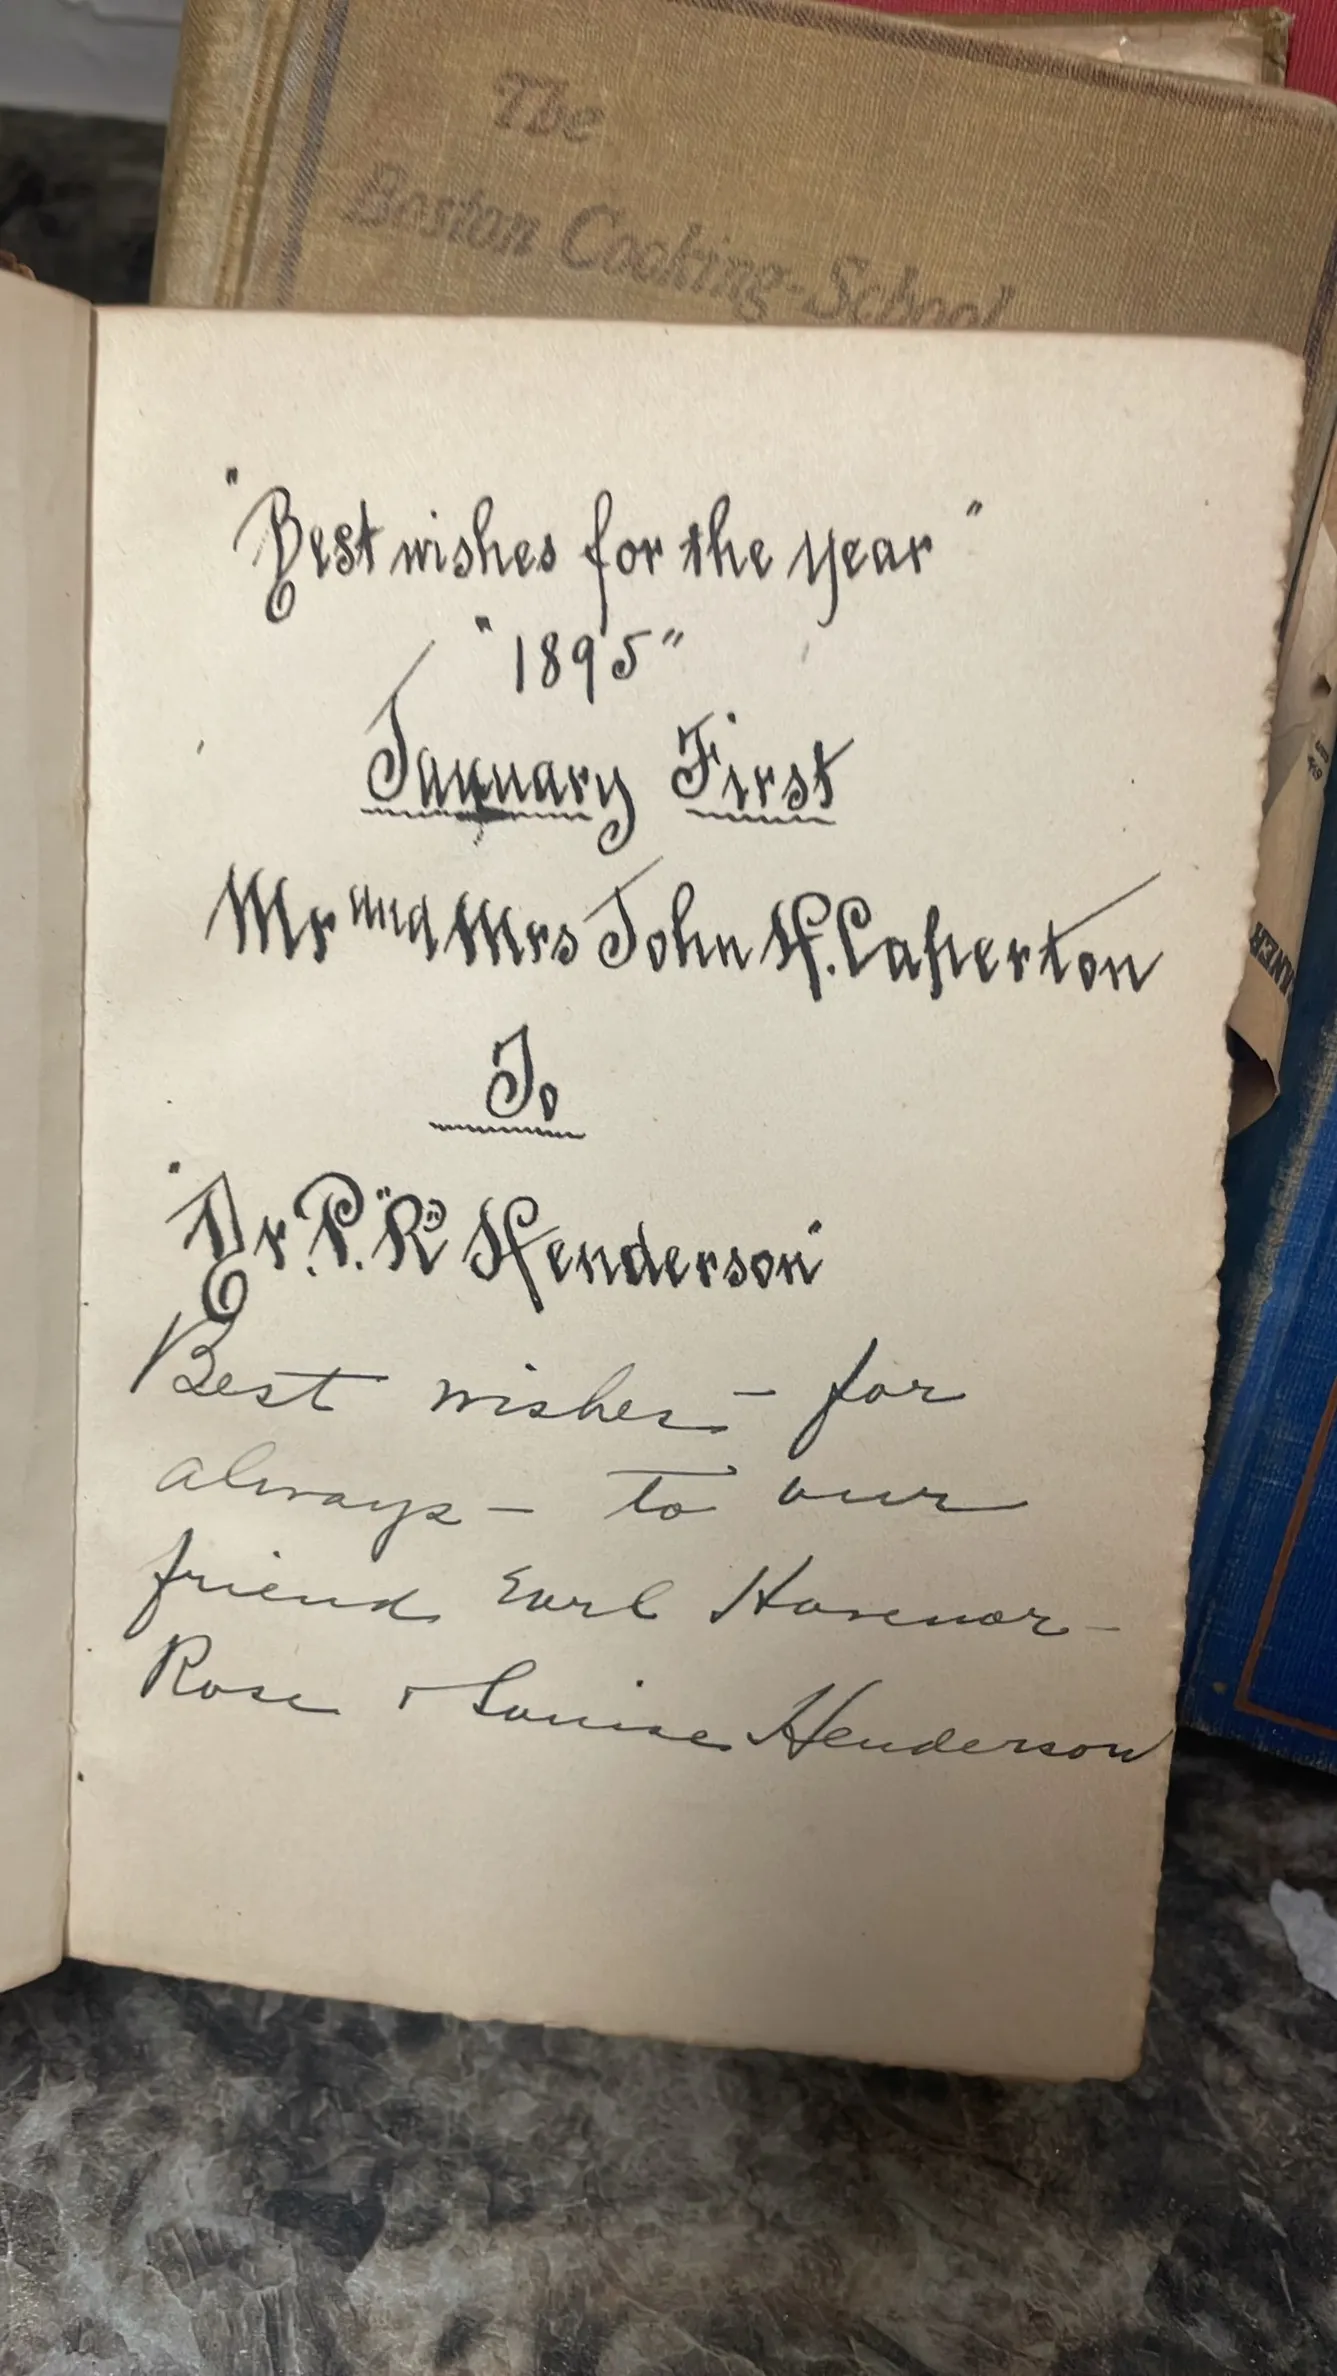 The
Boston Cooking-School
"Best wishes for the year"
"1895"
January First
Mr and Mrs John H.
To
"Dr. P. "R" Henderson"
Best wishes – for
always – to our
friend Earl
Rose & Louise Henderson